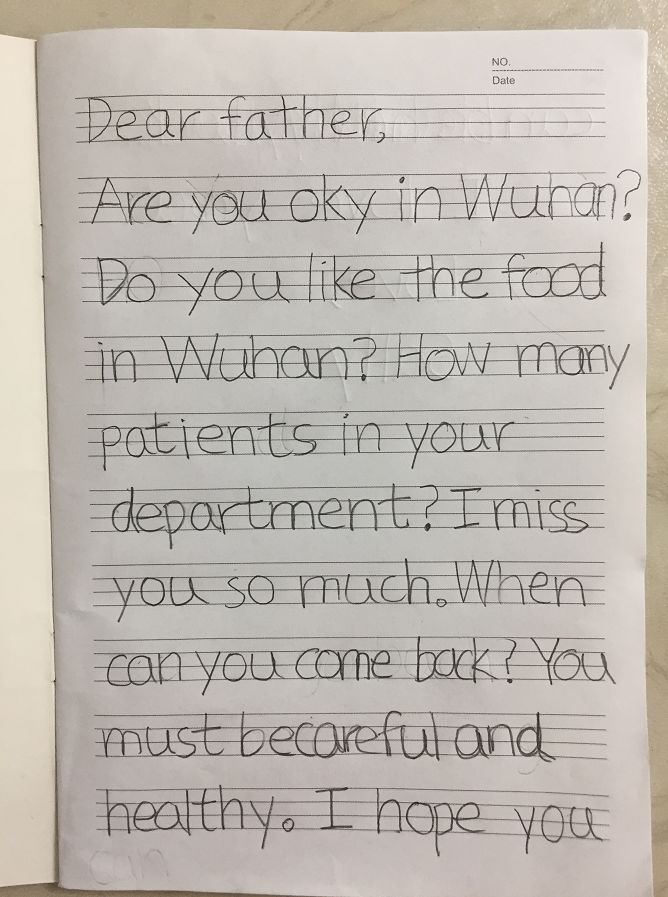 NO.
Date
Dear father,
Are you oky in Wuhan?
Do you like the food
in Wuhan? How many
patients in your
department? I miss
you so much。When
can you come back? You
must becareful and
healthy。I hope you
can